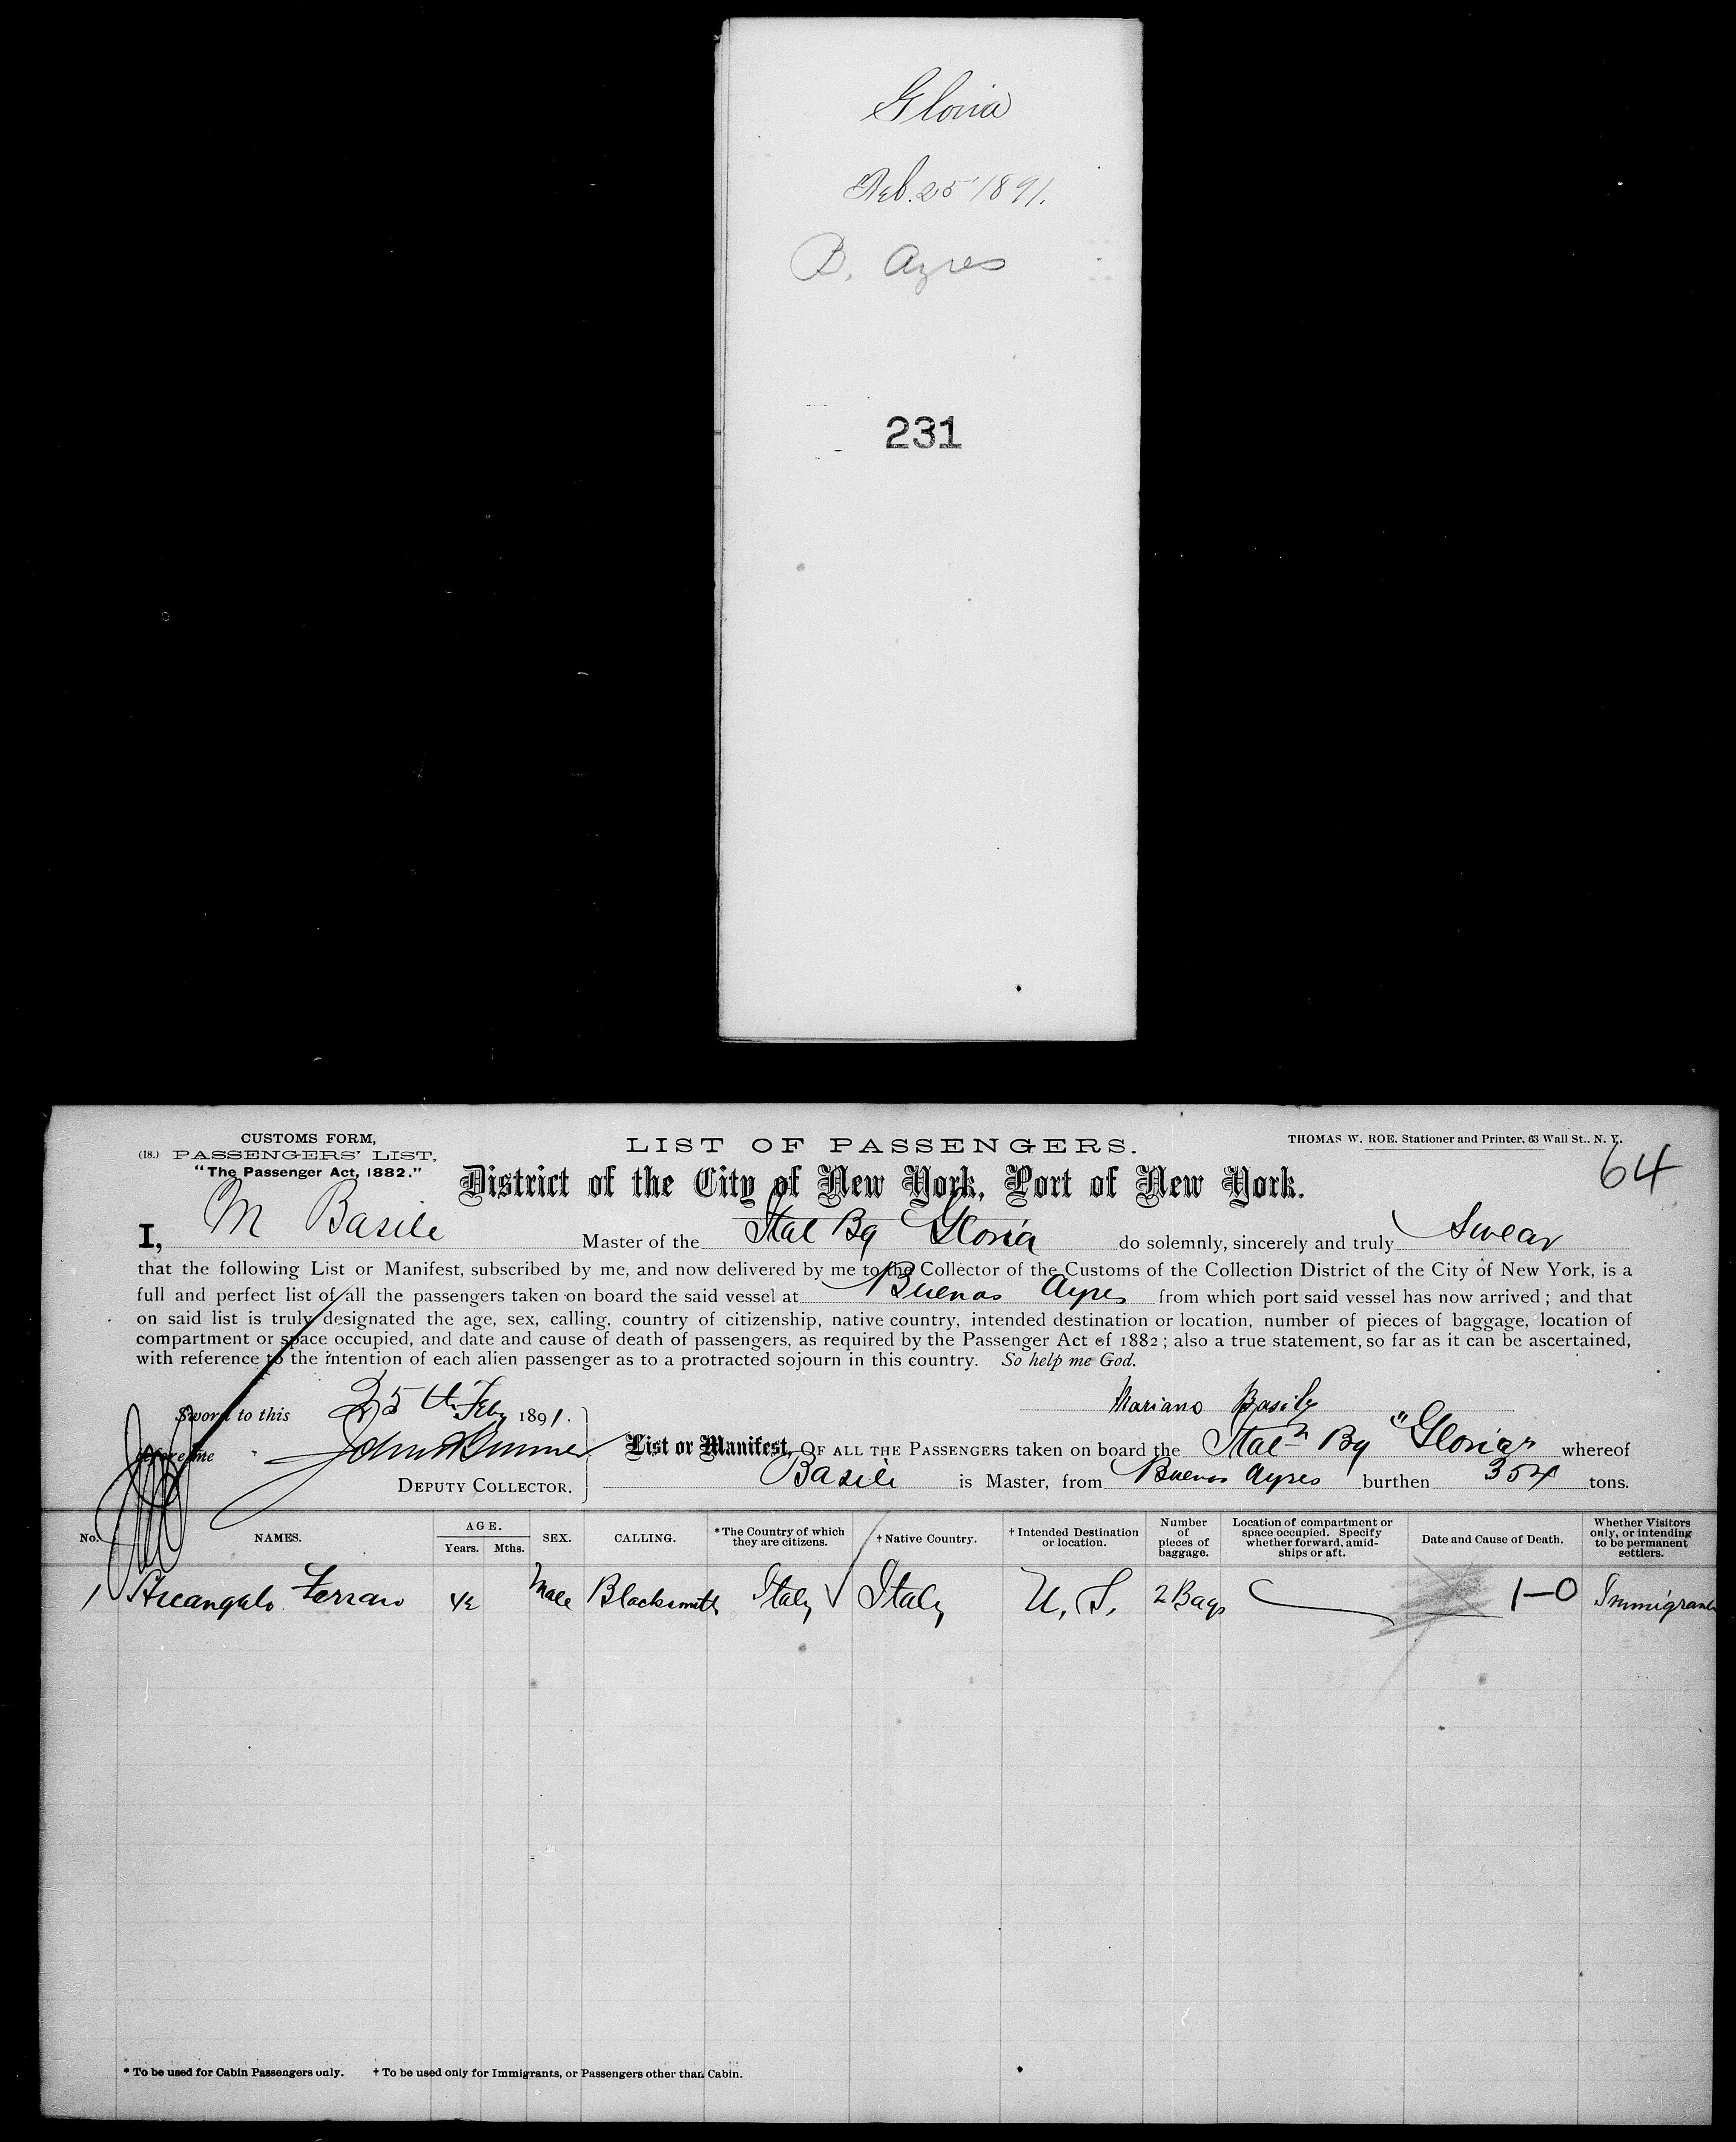 Gloria
Feb. 25 1891.
B. Ayres
231
CUSTOMS FORM,
(18.) PASSENGERS' LIST,
"The Passenger Act, 1882."
LIST OF PASSENGERS.
THOMAS W. ROE. Stationer and Printer, 63 Wall St., N. Y.
64
District of the City of New York, Port of New York.
I, M Basile Master of the Ital Bg Gloria do solemnly, sincerely and truly Swear
that the following List or Manifest, subscribed by me, and now delivered by me to the Collector of the Customs of the Collection District of the City of New York, is a
full and perfect list of all the passengers taken on board the said vessel at Buenos Ayres from which port said vessel has now arrived; and that
on said list is truly designated the age, sex, calling, country of citizenship, native country, intended destination or location, number of pieces of baggage, location of
compartment or space occupied, and date and cause of death of passengers, as required by the Passenger Act of 1882; also a true statement, so far as it can be ascertained,
with reference to the intention of each alien passenger as to a protracted sojourn in this country. So help me God.
Sworn to this 25th Feby 1891.
Mariano Basile
before me John
DEPUTY COLLECTOR.
List or Manifest, OF ALL THE PASSENGERS taken on board the Ital Bg "Gloria" whereof
Basile is Master, from Buenos Ayres burthen 354 tons.
No. NAMES. AGE. Years. Mths. SEX. CALLING. *The Country of which they are citizens. †Native Country. †Intended Destination or location. Number of pieces of baggage. Location of compartment or space occupied. Specify whether forward, amidships or aft. Date and Cause of Death. Whether Visitors only, or intending to be permanent settlers.
1 Arcangelo Ferraro 42 Male Blacksmith Italy Italy U. S. 2 Bags 1-0 Immigrant
* To be used for Cabin Passengers only. † To be used only for Immigrants, or Passengers other than Cabin.